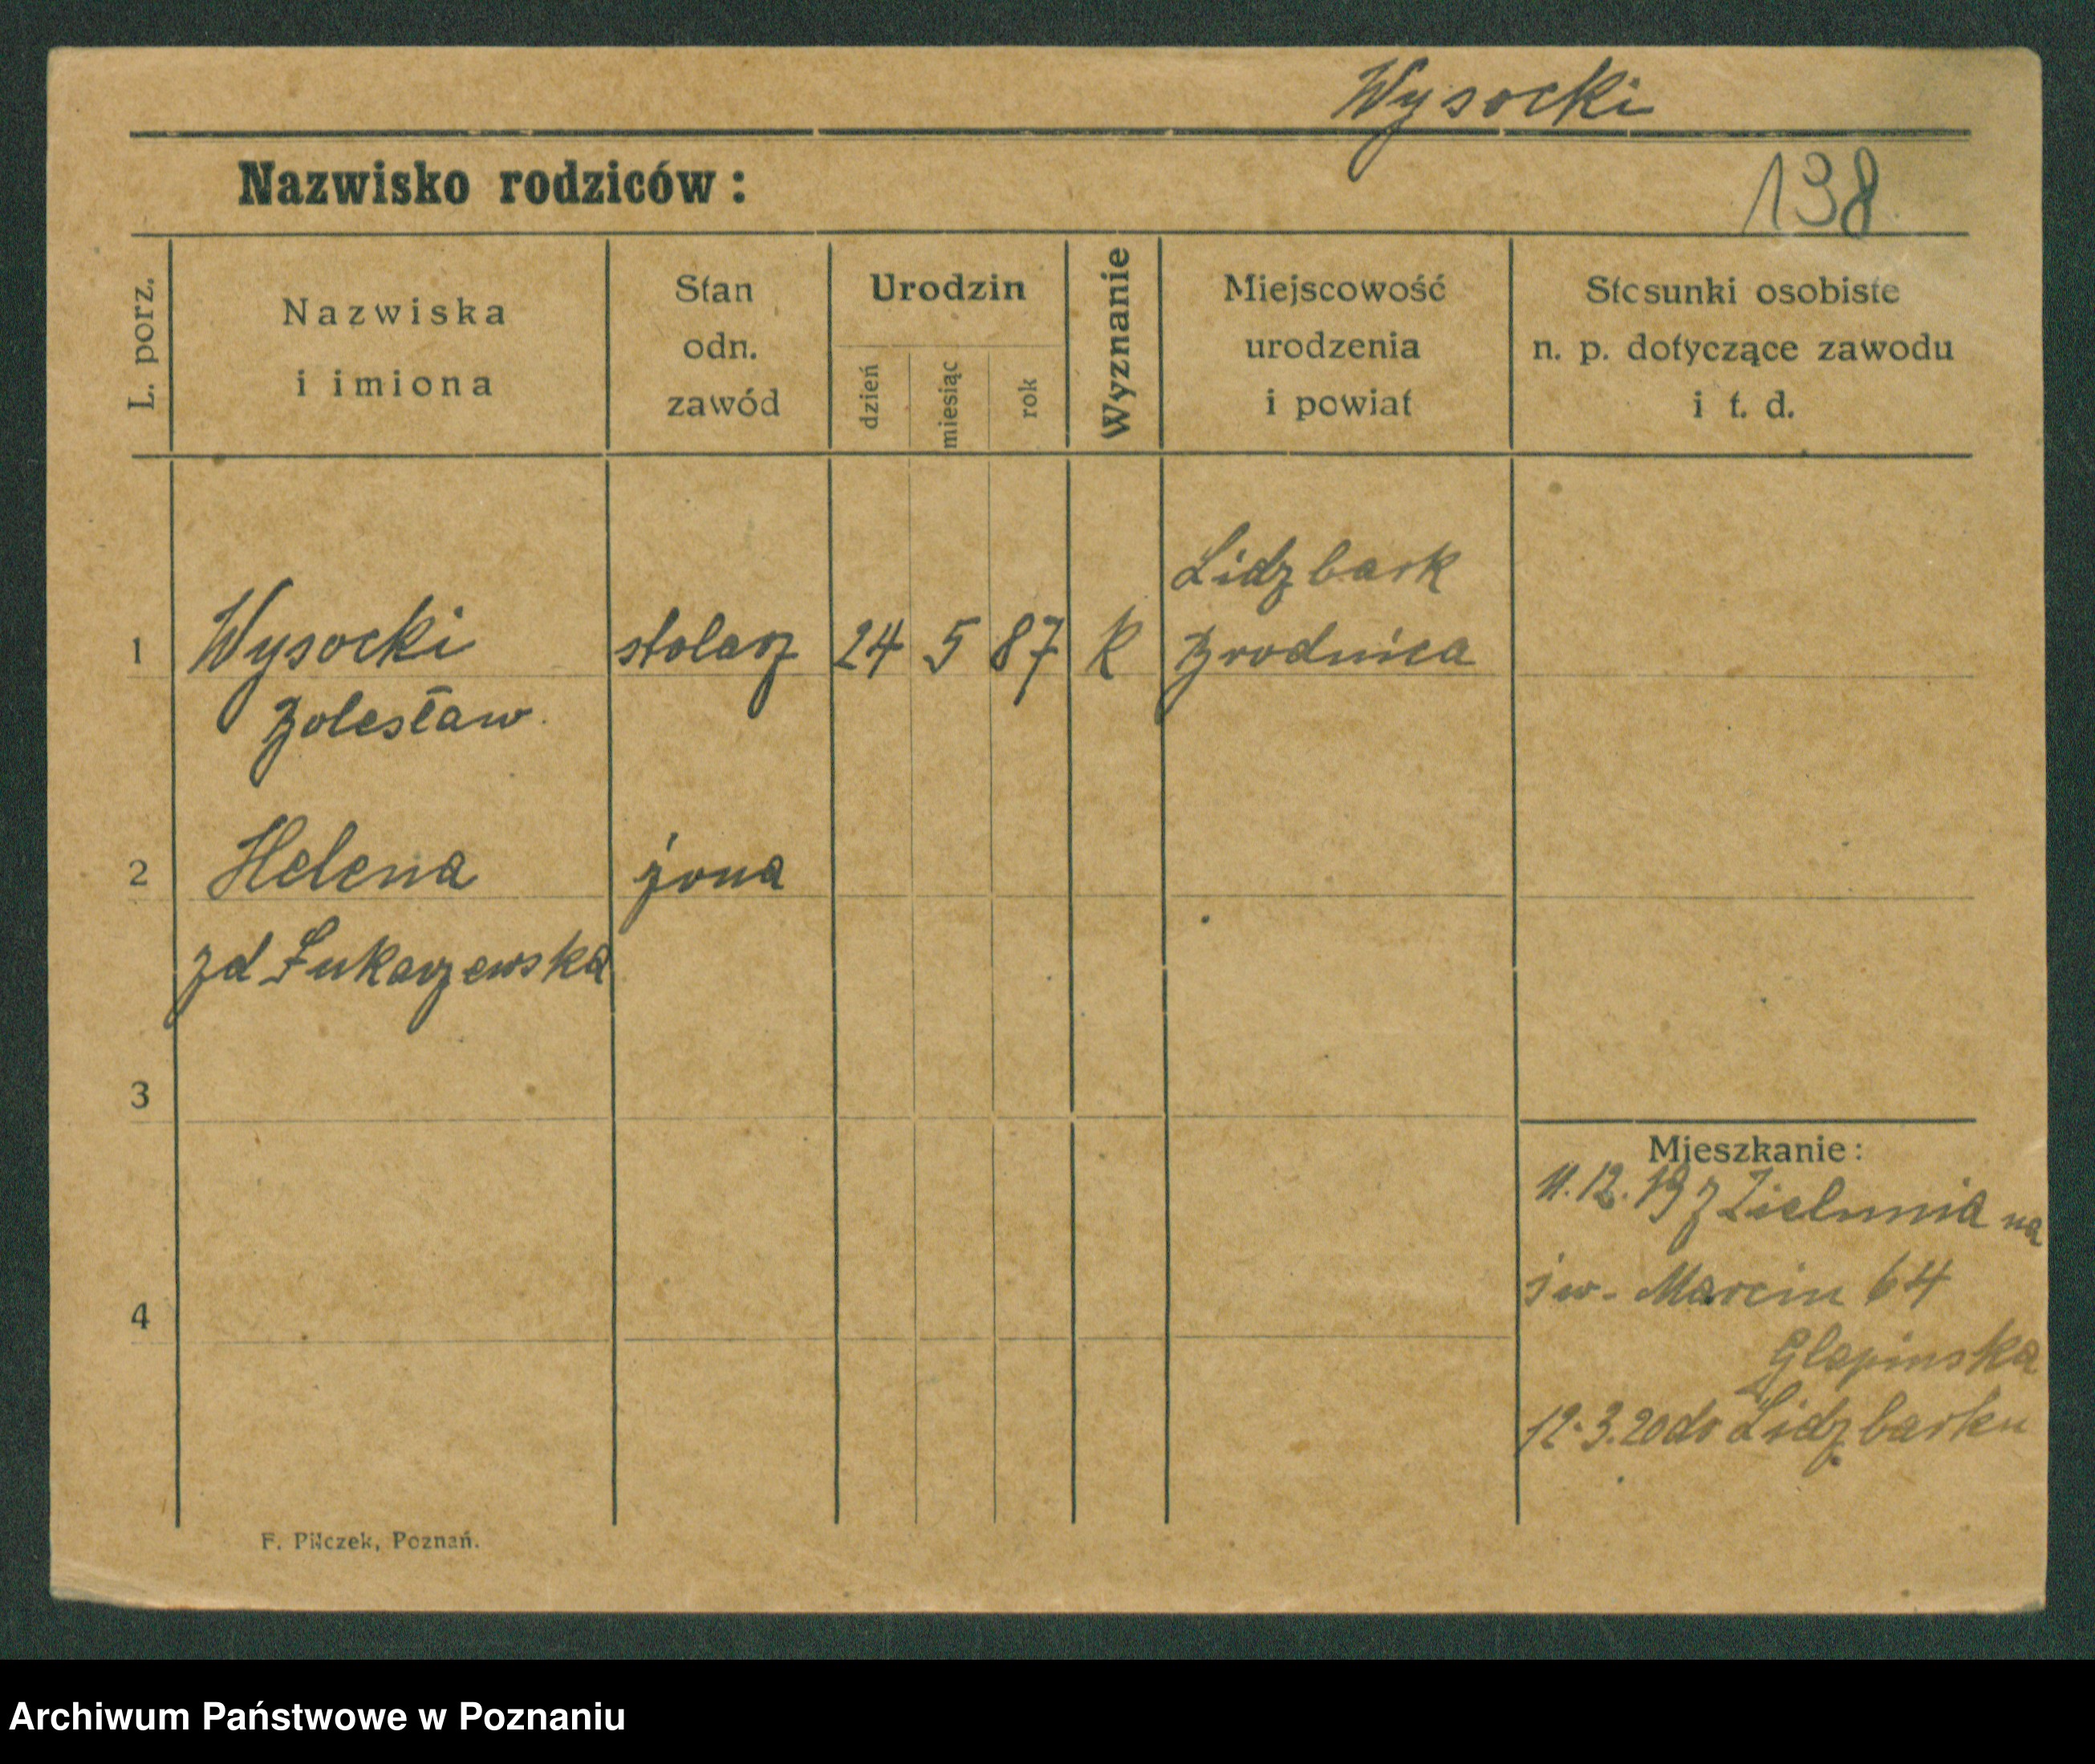 Wysocki
Nazwisko rodziców:
138
L. porz.
Nazwiska
i imiona
Stan
odn.
zawód
Urodzin
dzień
miesiąc
rok
Wyznanie
Miejscowość
urodzenia
i powiat
Stosunki osobiste
n. p. dotyczące zawodu
i t. d.
Lidzbark
1 Wysocki stolarz 24 5 87 K Brodnica
Bolesław
2 Helena żona
zd Łukaszewska
3
Mieszkanie:
11.12.19 z na
św. Marcin 64
4
Glapinska
12.3.20 do Lidzbarku
F. Pilczek, Poznań.
Archiwum Państwowe w Poznaniu